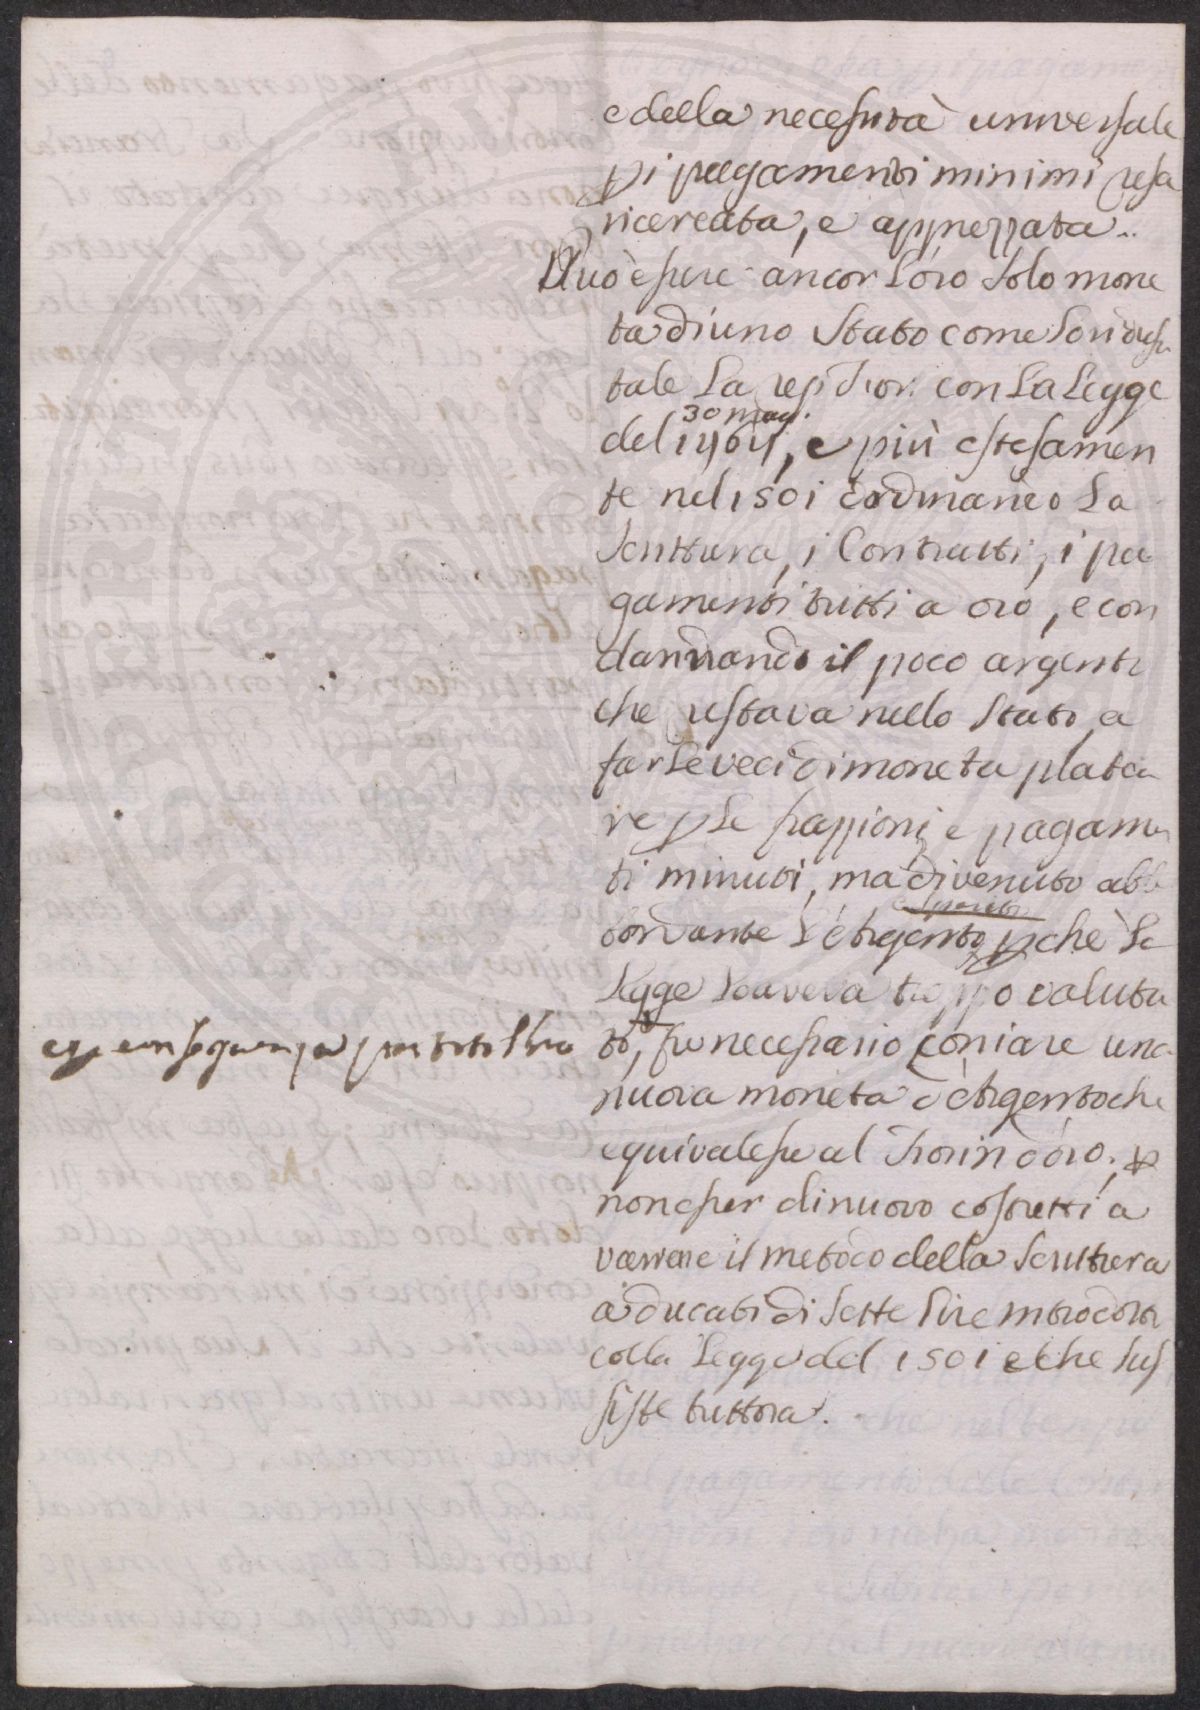 e della necessità universale
pi pagamenti minimi resa
ricercata, e apprezzata..
Può essere ancor l'oro solo mone
ta di uno Stato come lo ridusse
tale la rep. Fior. con la Legge
30 mag.
del 1464, e più estesamen
te nel 1501 ordinando la
Scrittura, i Contratti, i pa
gamenti tutti a oro, e con
dannando il poco argento
che restava nello Stato a
far le veci di moneta plate
re p le frazioni, e pagamen
ti minuti, ma divenuto abb
bondante l'Argento pchè la
legge l'aveva troppo valuta
e p conseguenza portato
to, fu necessario coniare una
nuova moneta d'Argento che
equivalesse al Fiorin d'oro; p
non esser di nuovo costretti a
variare il metodo della Scrittura
a ducati di sette lire introdotto
colla Legge del 1501 e che sus
siste tuttora.